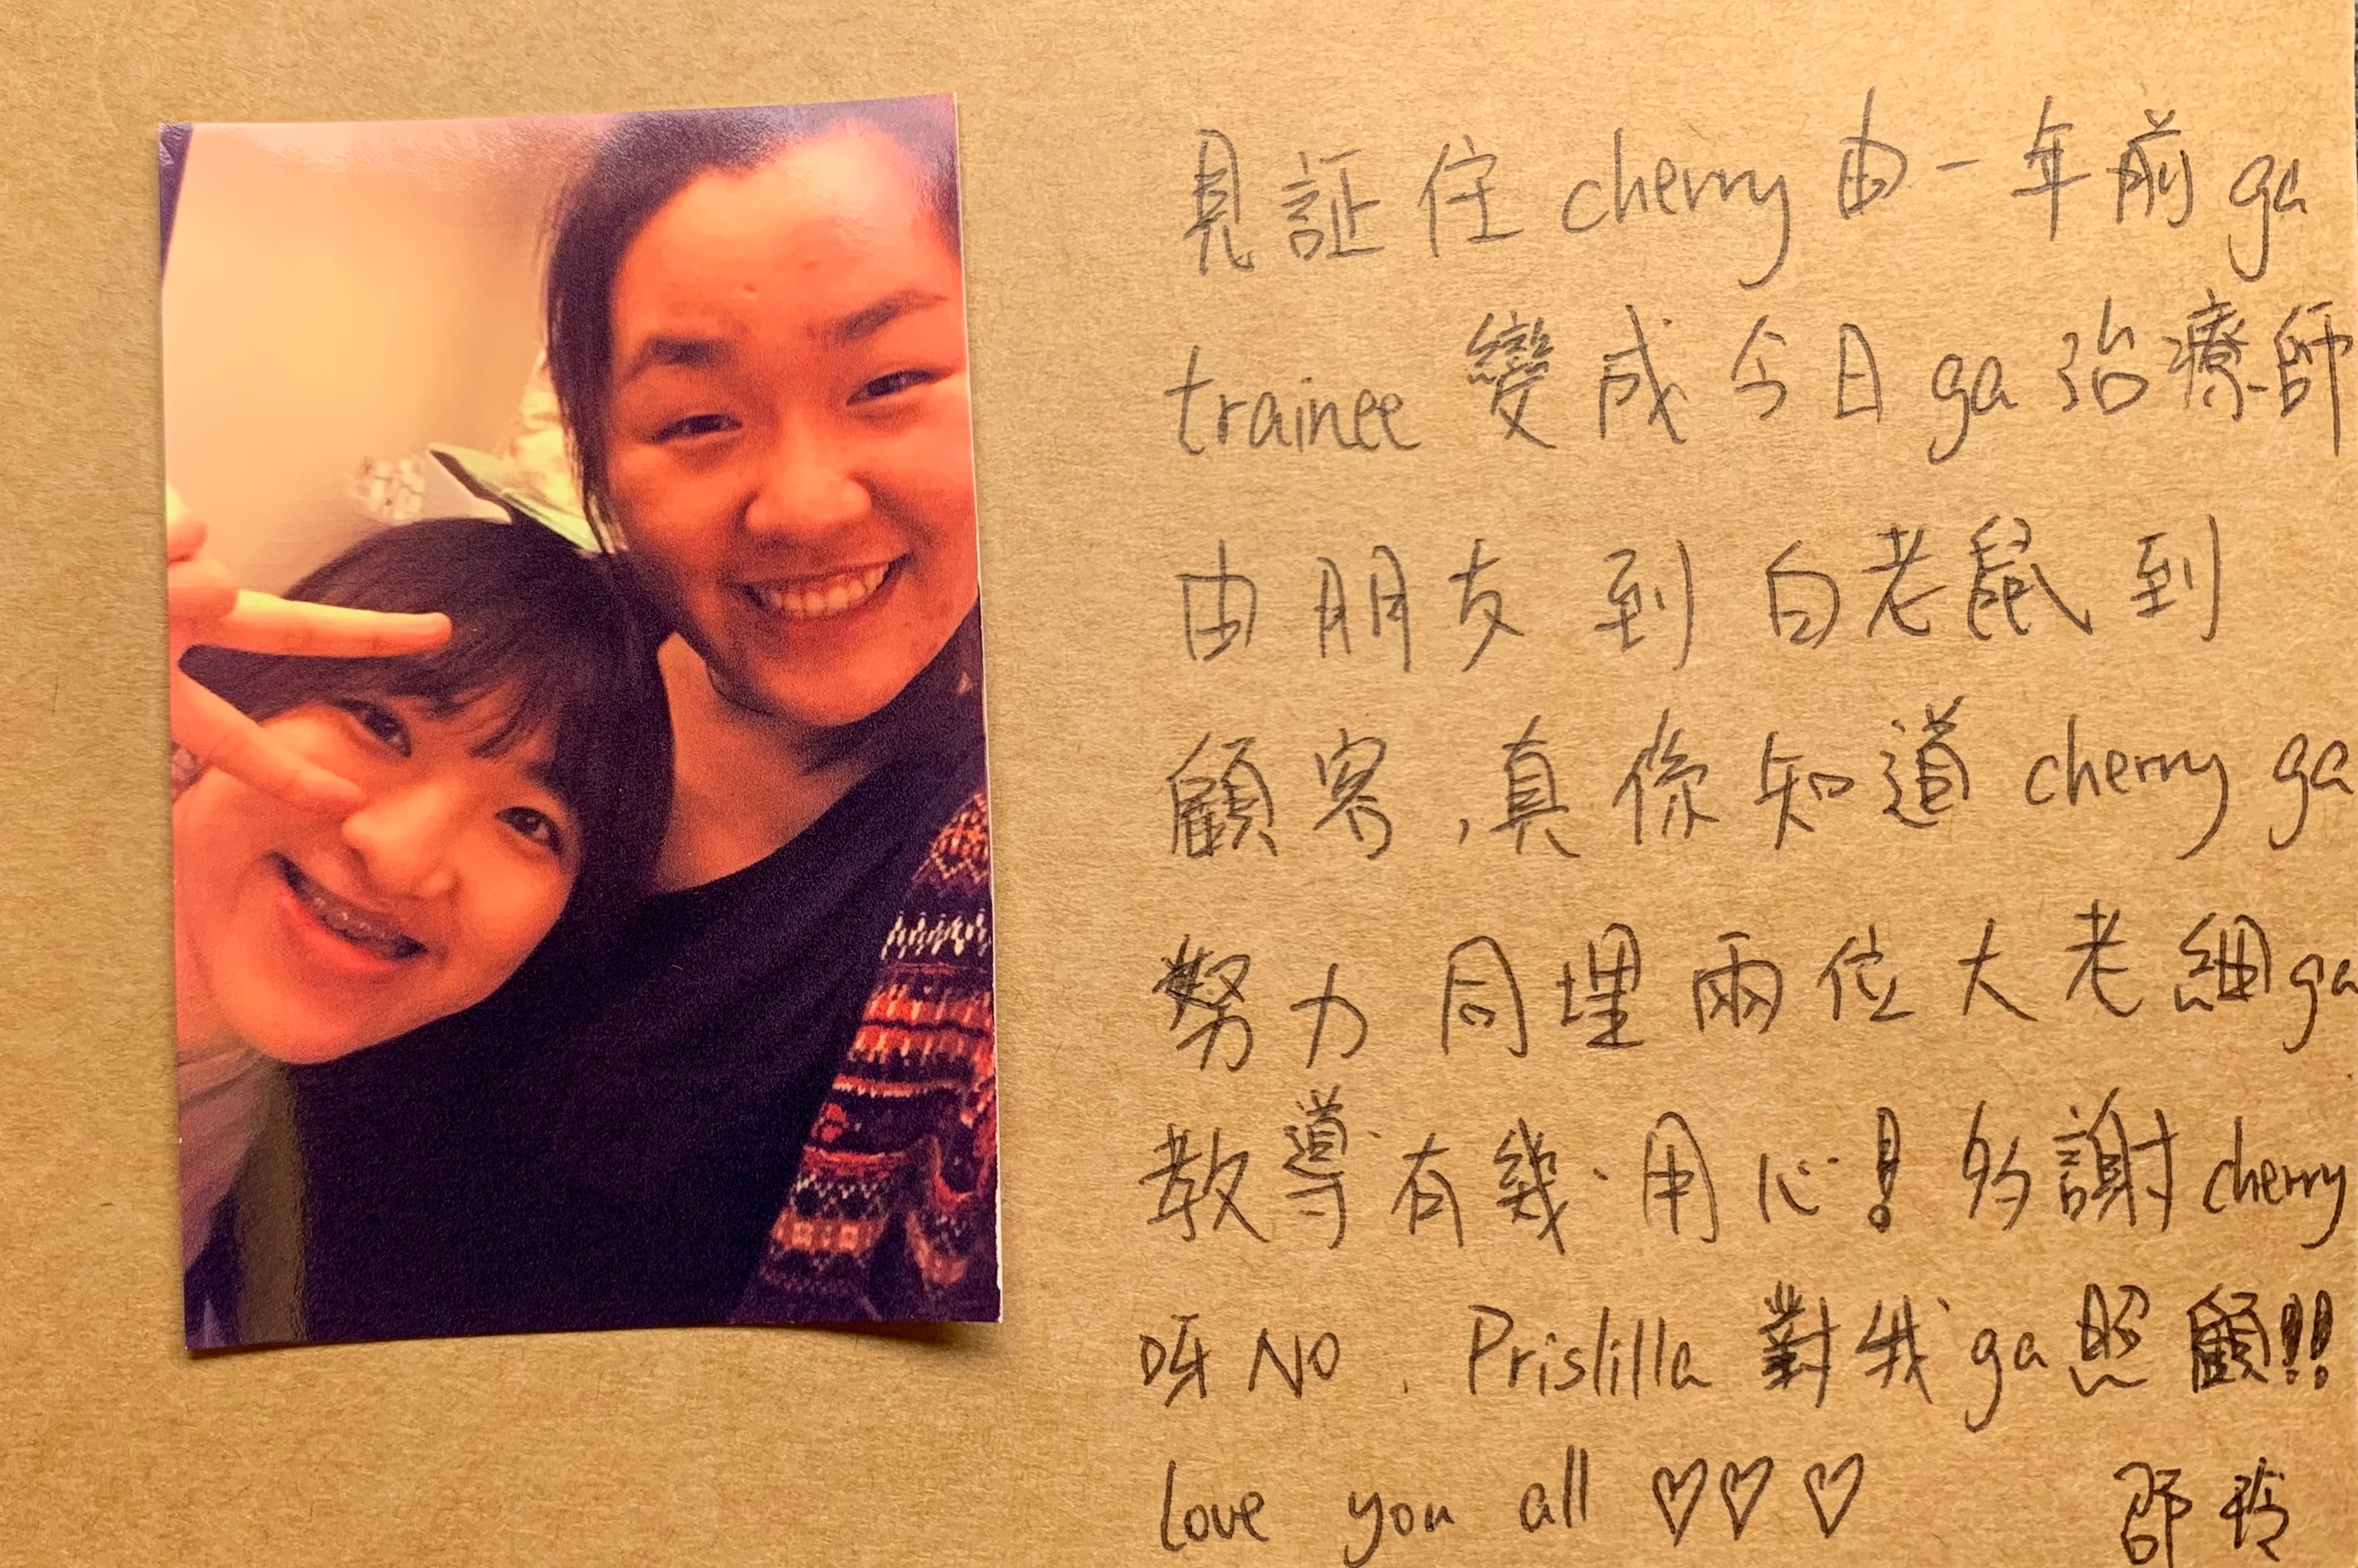 見証住 cherry 由一年前 ga
trainee 變成今日 ga 治療師
由朋友到白老鼠到
顧客,真係知道 cherry ga
努力同埋兩位大老細 ga
教導有幾用心!多謝 cherry
呀 NO. Prislilla 對我 ga 照顧!!
love you all ♡♡♡ 邵玲